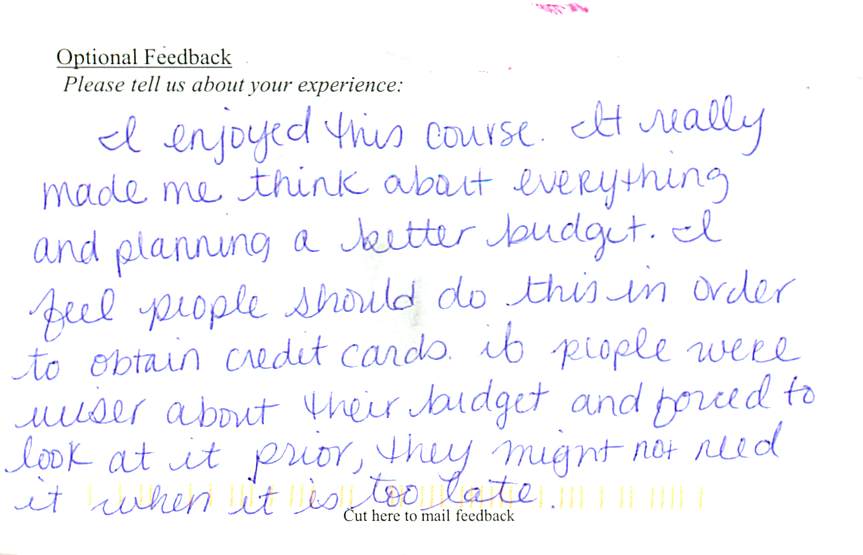 Optional Feedback
Please tell us about your experience:
I enjoyed this course. It really
made me think about everything
and planning a better budget. I
feel people should do this in order
to obtain credit cards. if people were
wiser about their budget and forced to
look at it prior, they might not need
it when it is too late.
Cut here to mail feedback